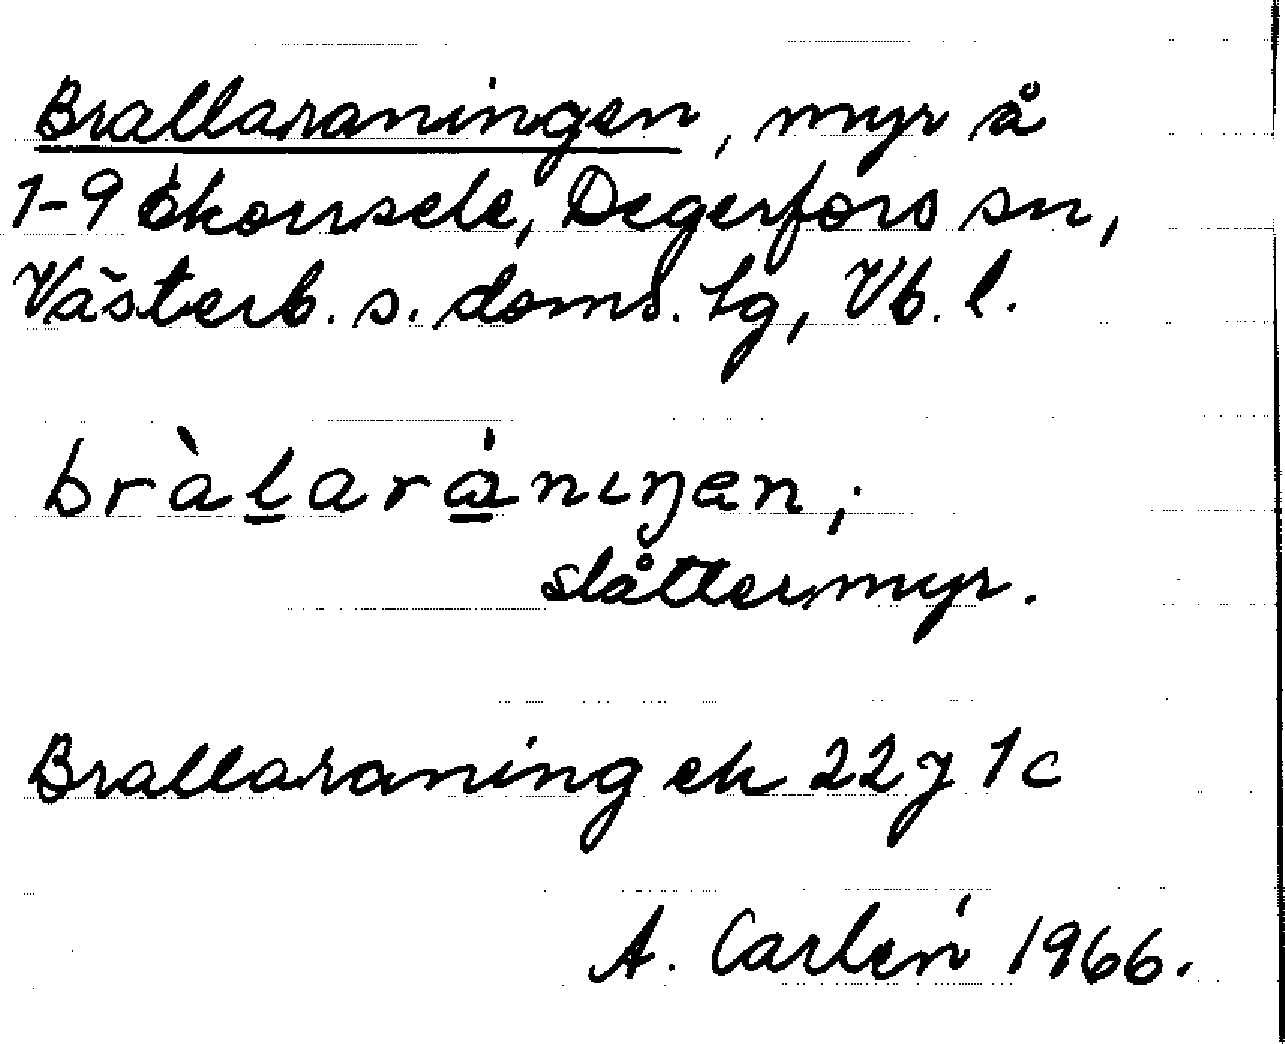 Brallaraningen, myr å
1-9 Ekorrsele, Degerfors sn,
Västerb. s. doms. lg, Vb. l.
bràl̲arά̲nɩŋen;
slåttermyr.
Brallaraning ek 22 J 1c
A. Carlén 1966.